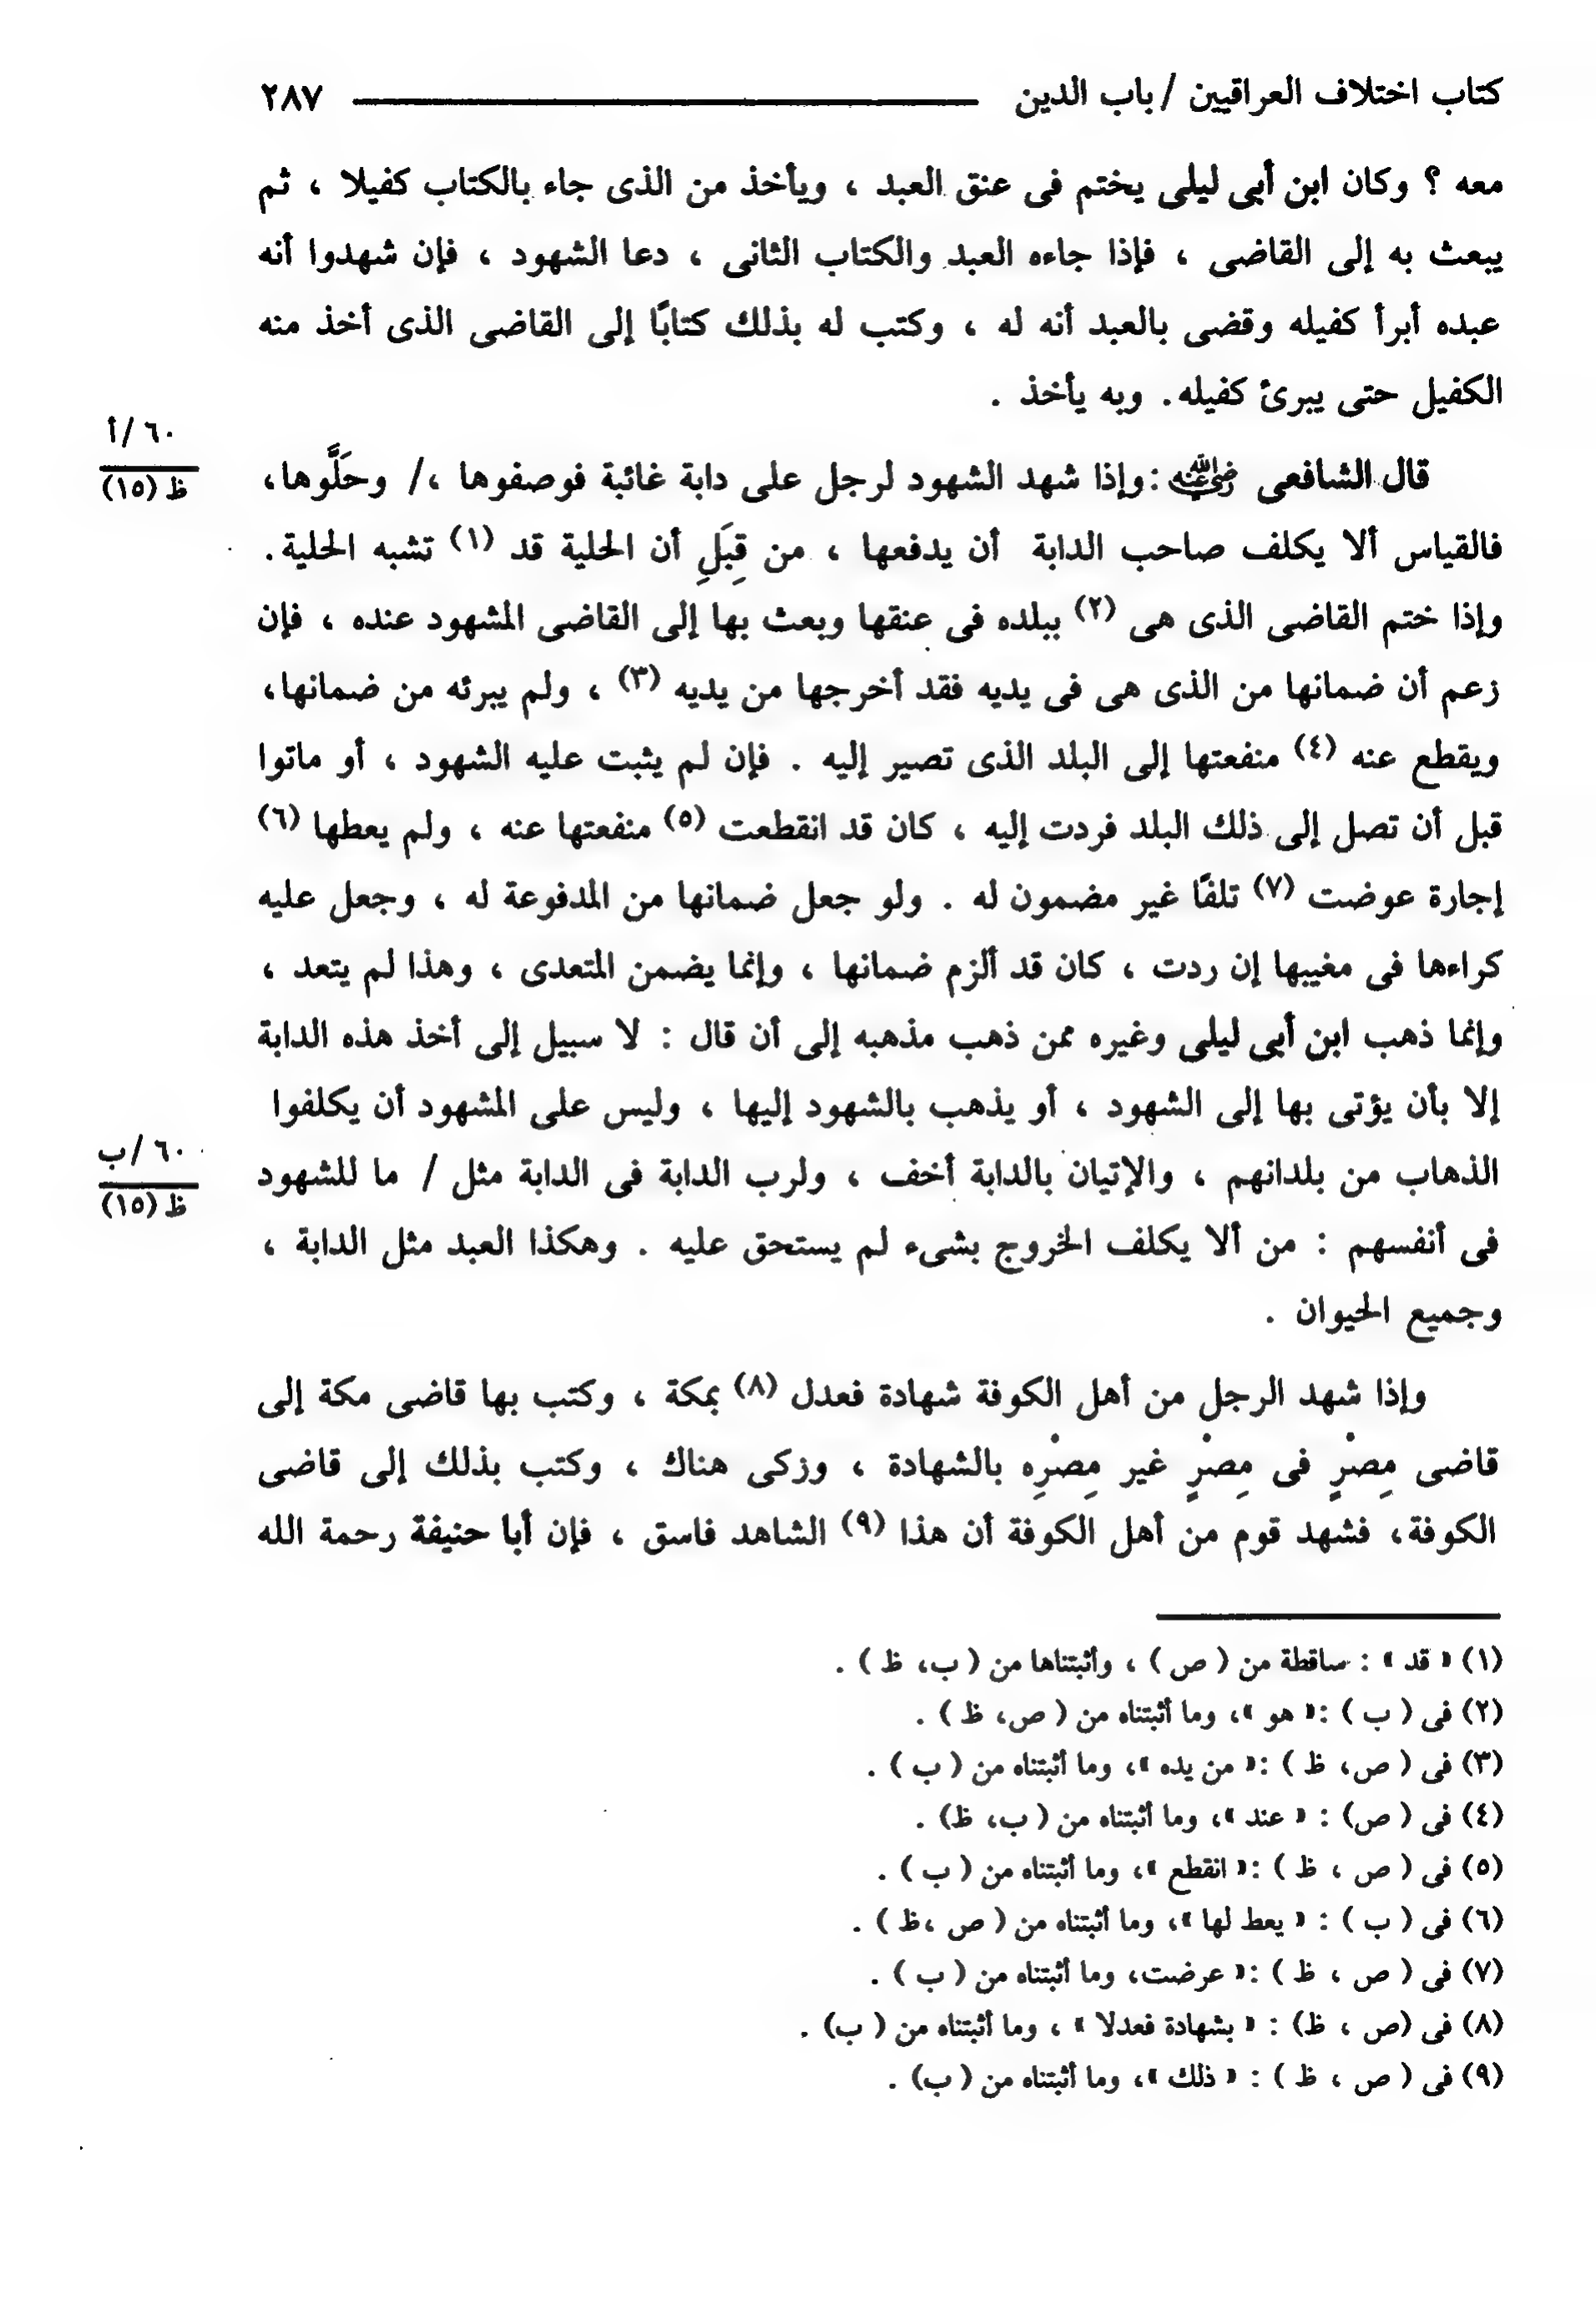 كتاب اختلاف العراقيين / باب الدين ٢٨٧
معه ؟ وكان ابن أبى ليلى يختم فى عنق العبد ، ويأخذ من الذى جاء بالكتاب كفيلا ، ثم
يبعث به إلى القاضى ، فإذا جاءه العبد والكتاب الثانى ، دعا الشهود ، فإن شهدوا أنه
عبده أبرأ كفيله وقضى بالعبد أنه له ، وكتب له بذلك كتابًا إلى القاضى الذى أخذ منه
الكفيل حتى يبرئ كفيله. وبه يأخذ .
٦٠/أ
ظ (١٥)
قال الشافعى رضي الله عنه :وإذا شهد الشهود لرجل على دابة غائبة فوصفوها ،/ وحَلَّوها،
فالقياس ألا يكلف صاحب الدابة أن يدفعها ، من قِبَلِ أن الحلية قد (١) تشبه الحلية.
وإذا ختم القاضى الذى هى (٢) ببلده فى عنقها وبعث بها إلى القاضى المشهود عنده ، فإن
زعم أن ضمانها من الذى هى فى يديه فقد أخرجها من يديه (٣) ، ولم يبرئه من ضمانها،
ويقطع عنه (٤) منفعتها إلى البلد الذى تصير إليه . فإن لم يثبت عليه الشهود ، أو ماتوا
قبل أن تصل إلى ذلك البلد فردت إليه ، كان قد انقطعت (٥) منفعتها عنه ، ولم يعطها (٦)
إجارة عوضت (٧) تلفًا غير مضمون له . ولو جعل ضمانها من المدفوعة له ، وجعل عليه
كراءها فى مغيبها إن ردت ، كان قد ألزم ضمانها ، وإنما يضمن المتعدى ، وهذا لم يتعد ،
وإنما ذهب ابن أبى ليلى وغيره ممن ذهب مذهبه إلى أن قال : لا سبيل إلى أخذ هذه الدابة
إلا بأن يؤتى بها إلى الشهود ، أو يذهب بالشهود إليها ، وليس على المشهود أن يكلفوا
٦٠/ب
ظ (١٥)
الذهاب من بلدانهم ، والإتيان بالدابة أخف ، ولرب الدابة فى الدابة مثل / ما للشهود
فى أنفسهم : من ألا يكلف الخروج بشىء لم يستحق عليه . وهكذا العبد مثل الدابة ،
وجميع الحيوان .
وإذا شهد الرجل من أهل الكوفة شهادة فعدل (٨) بمكة ، وكتب بها قاضى مكة إلى
قاضى مِصْرٍ فى مِصْرٍ غير مِصْرِه بالشهادة ، وزكى هناك ، وكتب بذلك إلى قاضى
الكوفة، فشهد قوم من أهل الكوفة أن هذا (٩) الشاهد فاسق ، فإن أبا حنيفة رحمة الله
(١) « قد » : ساقطة من ( ص ) ، وأثبتناها من ( ب، ظ ) .
(٢) فى ( ب ) :« هو »، وما أثبتناه من ( ص، ظ ) .
(٣) فى ( ص، ظ ) :« من يده »، وما أثبتناه من ( ب ) .
(٤) فى ( ص) : « عند »، وما أثبتناه من ( ب، ظ) .
(٥) فى ( ص ، ظ ) :« انقطع »، وما أثبتناه من ( ب ) .
(٦) فى ( ب ) : « يعط لها »، وما أثبتناه من ( ص ،ظ ) .
(٧) فى ( ص ، ظ ) :« عرضت، وما أثبتناه من ( ب ) .
(٨) فى (ص ، ظ) : « بشهادة فعدلا » ، وما أثبتناه من ( ب) .
(٩) فى ( ص ، ظ ) : « ذلك »، وما أثبتناه من ( ب) .